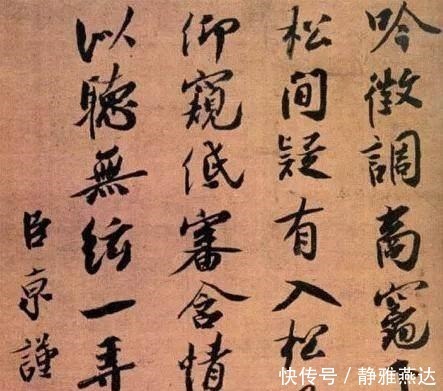 吟徵調商竈
松間疑有入松
仰窺低審含情
以聽無絃一弄
臣京謹
快传号 / 静雅燕达